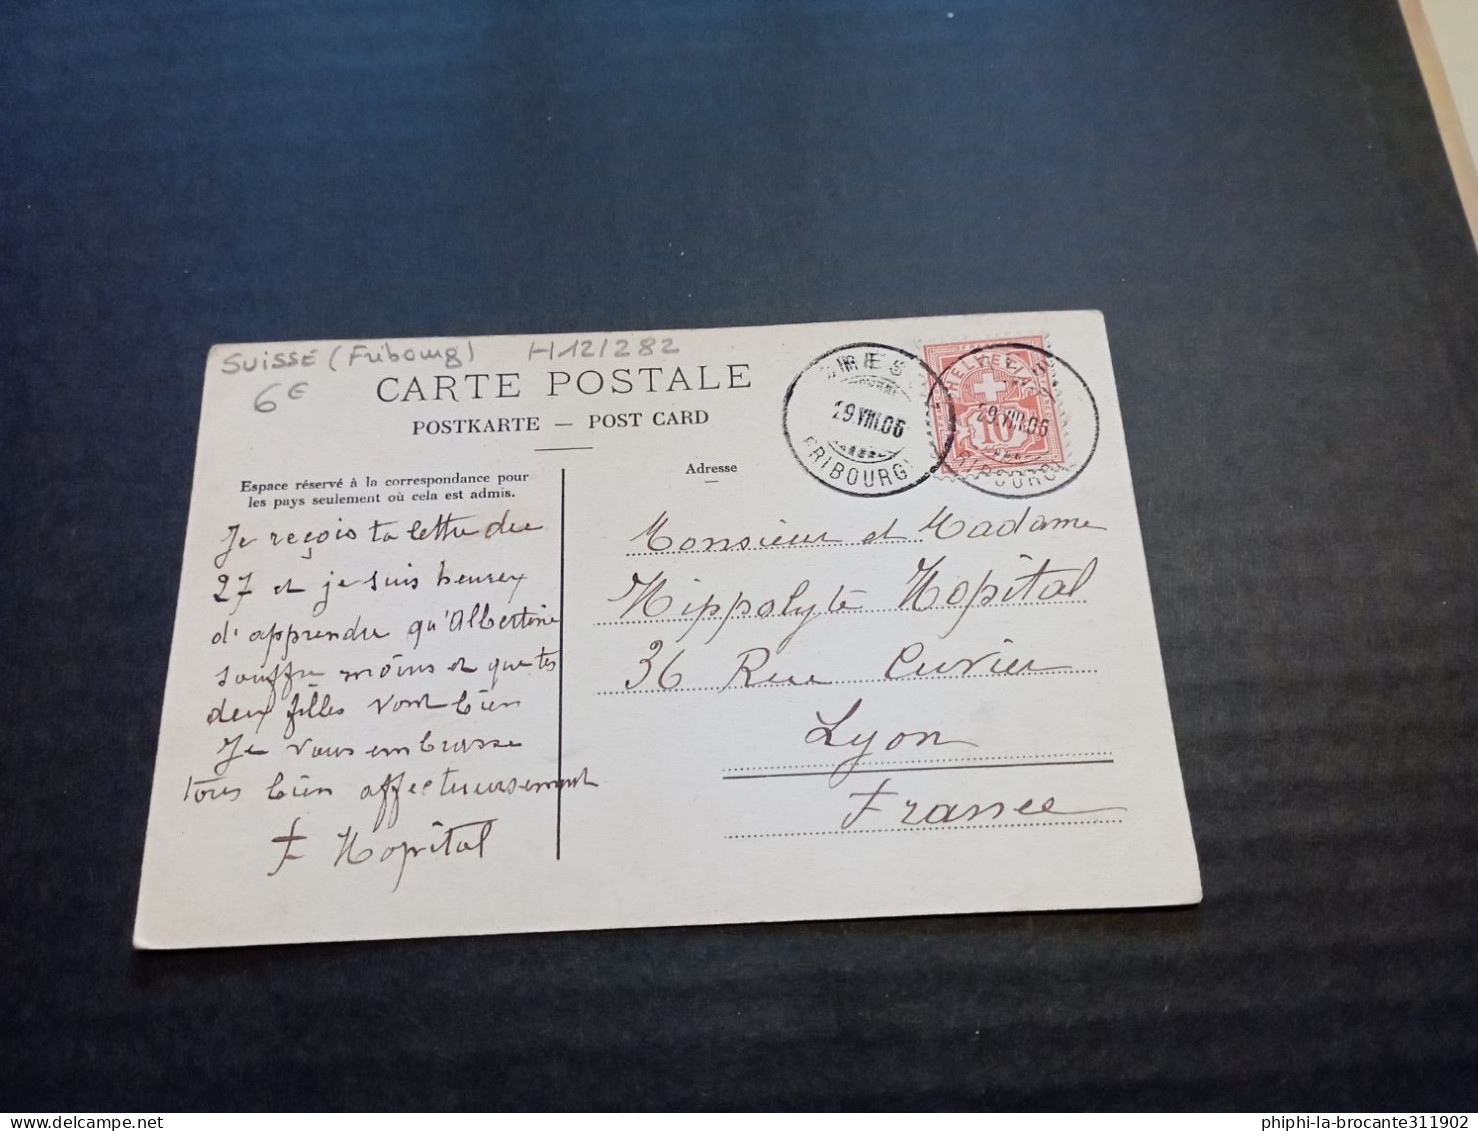 SUISSE (Fribourg) H12/282
6€
CARTE POSTALE
POSTKARTE — POST CARD
Espace réservé à la correspondance pour
les pays seulement où cela est admis.
Adresse
29.VIII.06
FRIBOURG
HELVETIA
10
29.VIII.06
Je reçois ta lettre du
27 et je suis heureux
d'apprendre qu'Albertine
souffre moins et que tes
deux filles vont bien
Je vous embrasse
tous bien affectueusement
F Hopital
Monsieur et Madame
Hippolyte Hopital
36 Rue Cuvier
Lyon
France
phiphi-la-brocante311902